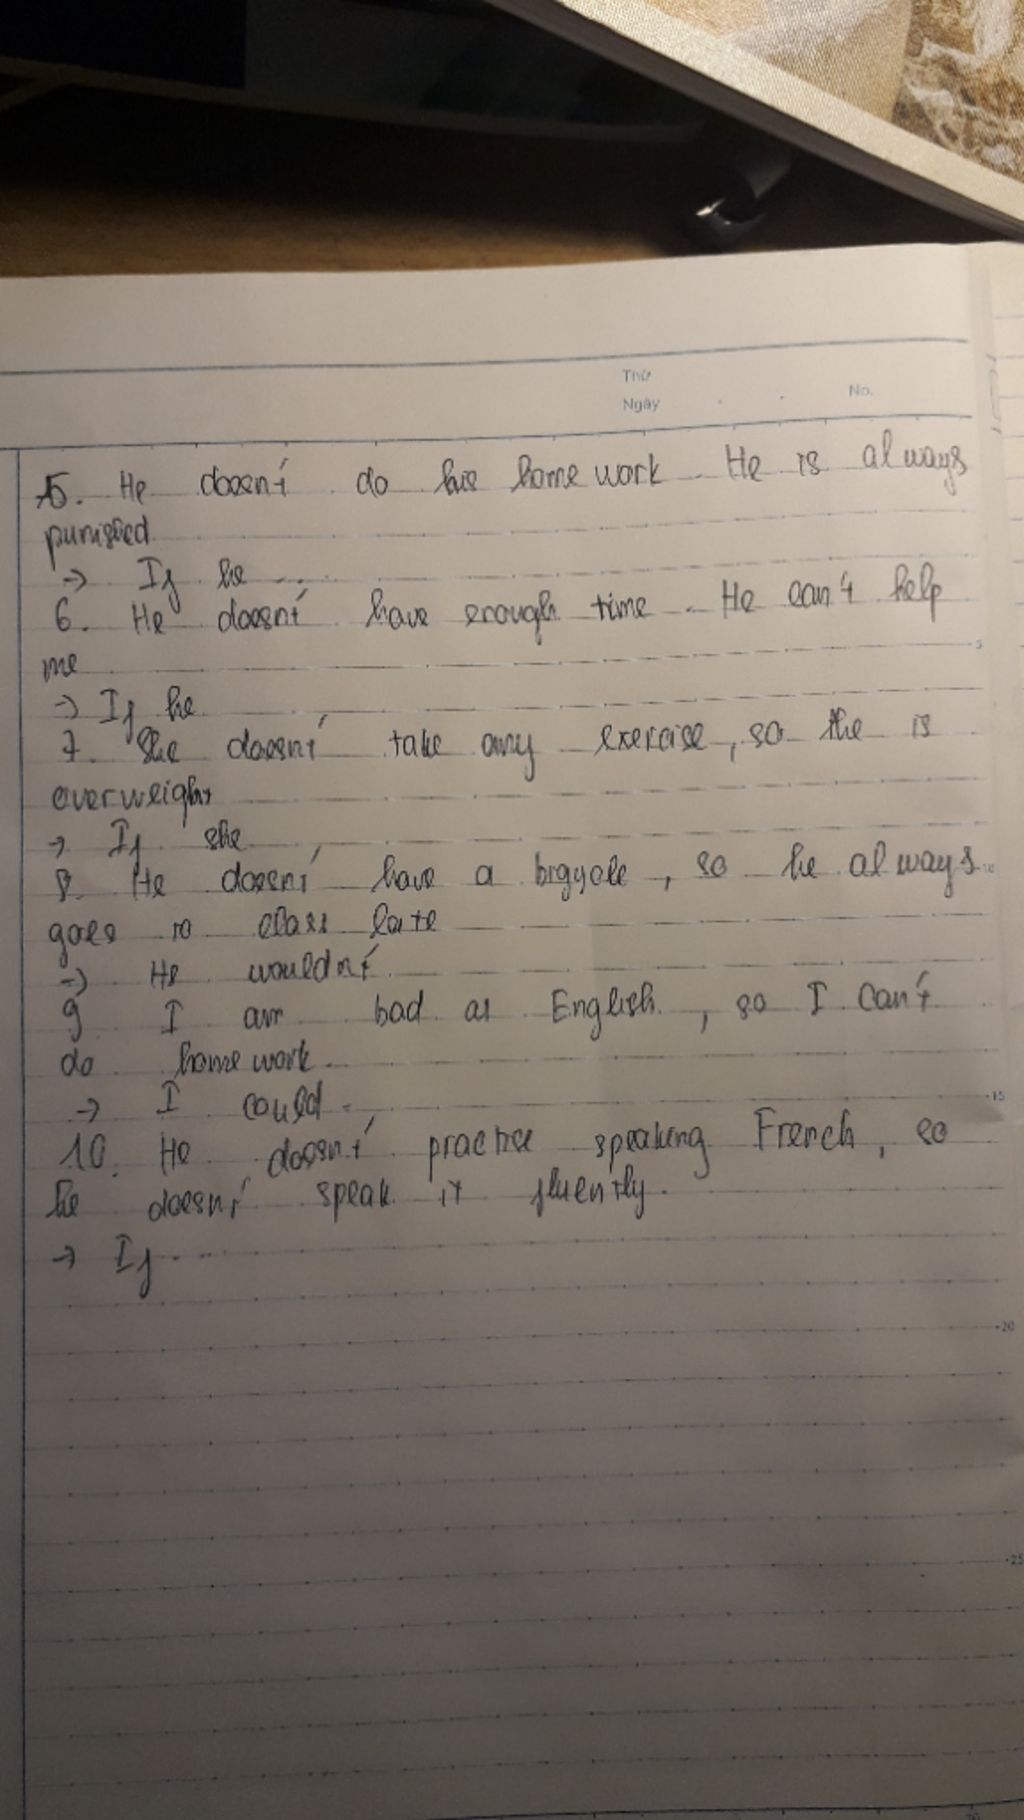 Thứ
Ngày No.
5. He doesn't do his homework. He is always
punished.
→ If he ....
6. He doesn't have enough time. He can't help
me
→ If he
7. She doesn't take any exercise, so she is
overweight
→ If she
8. He doesn't have a bicycle, so he always
goes to class late
→ He wouldn't
9 I am bad at English, so I can't
do homework.
→ I could
10. He doesn't practise speaking French, so
he doesn't speak it fluently.
→ If ....
5
10
15
20
25